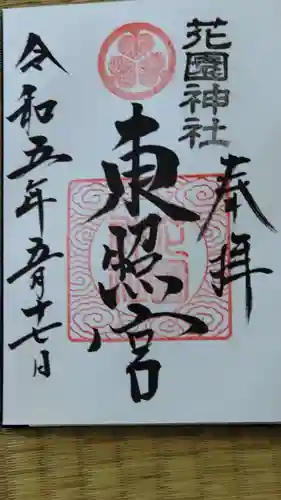 花園神社
奉拝
東照宮
令和五年五月十七日